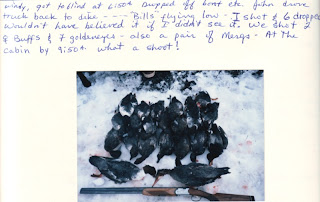 windy, got to blind at 6:50A. Dropped off boat etc. John drove
truck back to dike ---- "Bills" flying low - I shot & 6 dropped
Wouldn't have believed it if I didn't see it. We shot 2
& Buffs & 7 goldeneyes - also a pair of Mergs - At the
cabin by 9:50A. What a shoot!